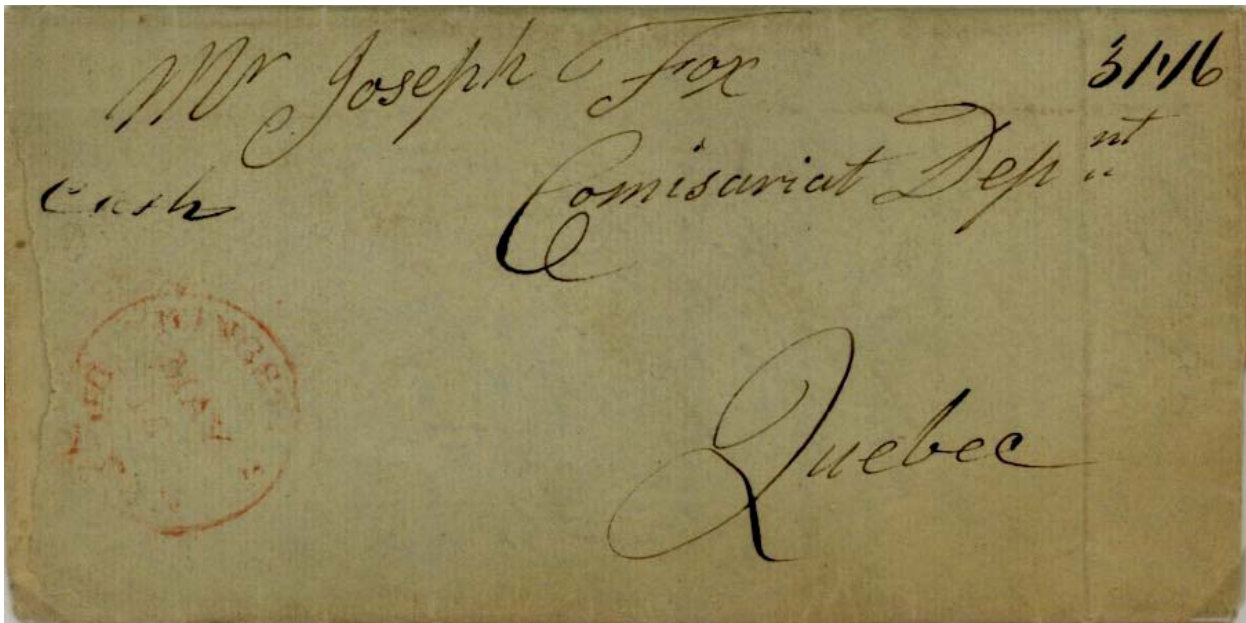 Mr Joseph Fox
3/1/6
Cash
Comisariat Depnt
Quebec
KINGST
MAY